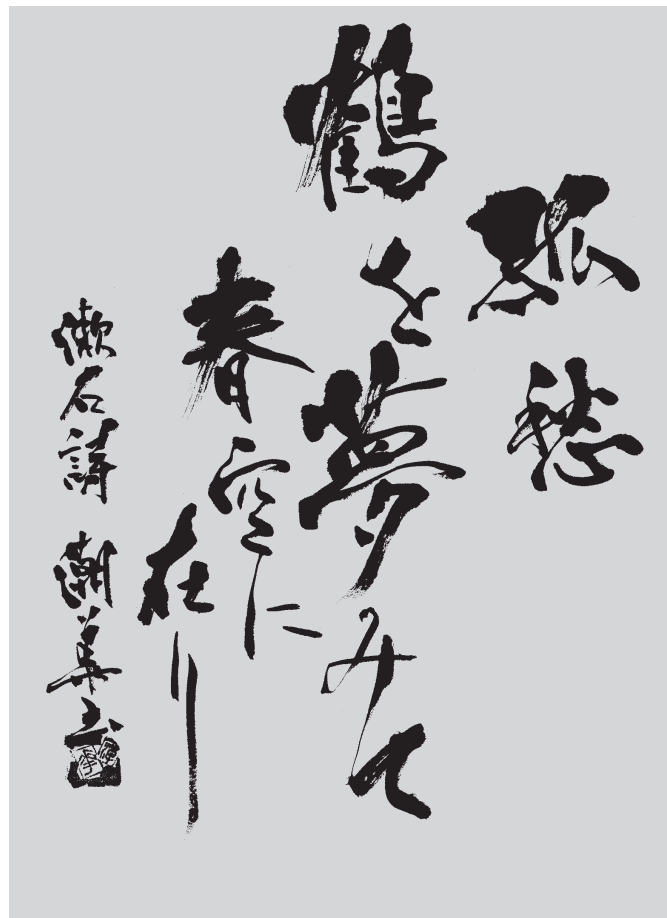 孤愁
鶴を夢みて
春空に
在り
漱石詩 潮華